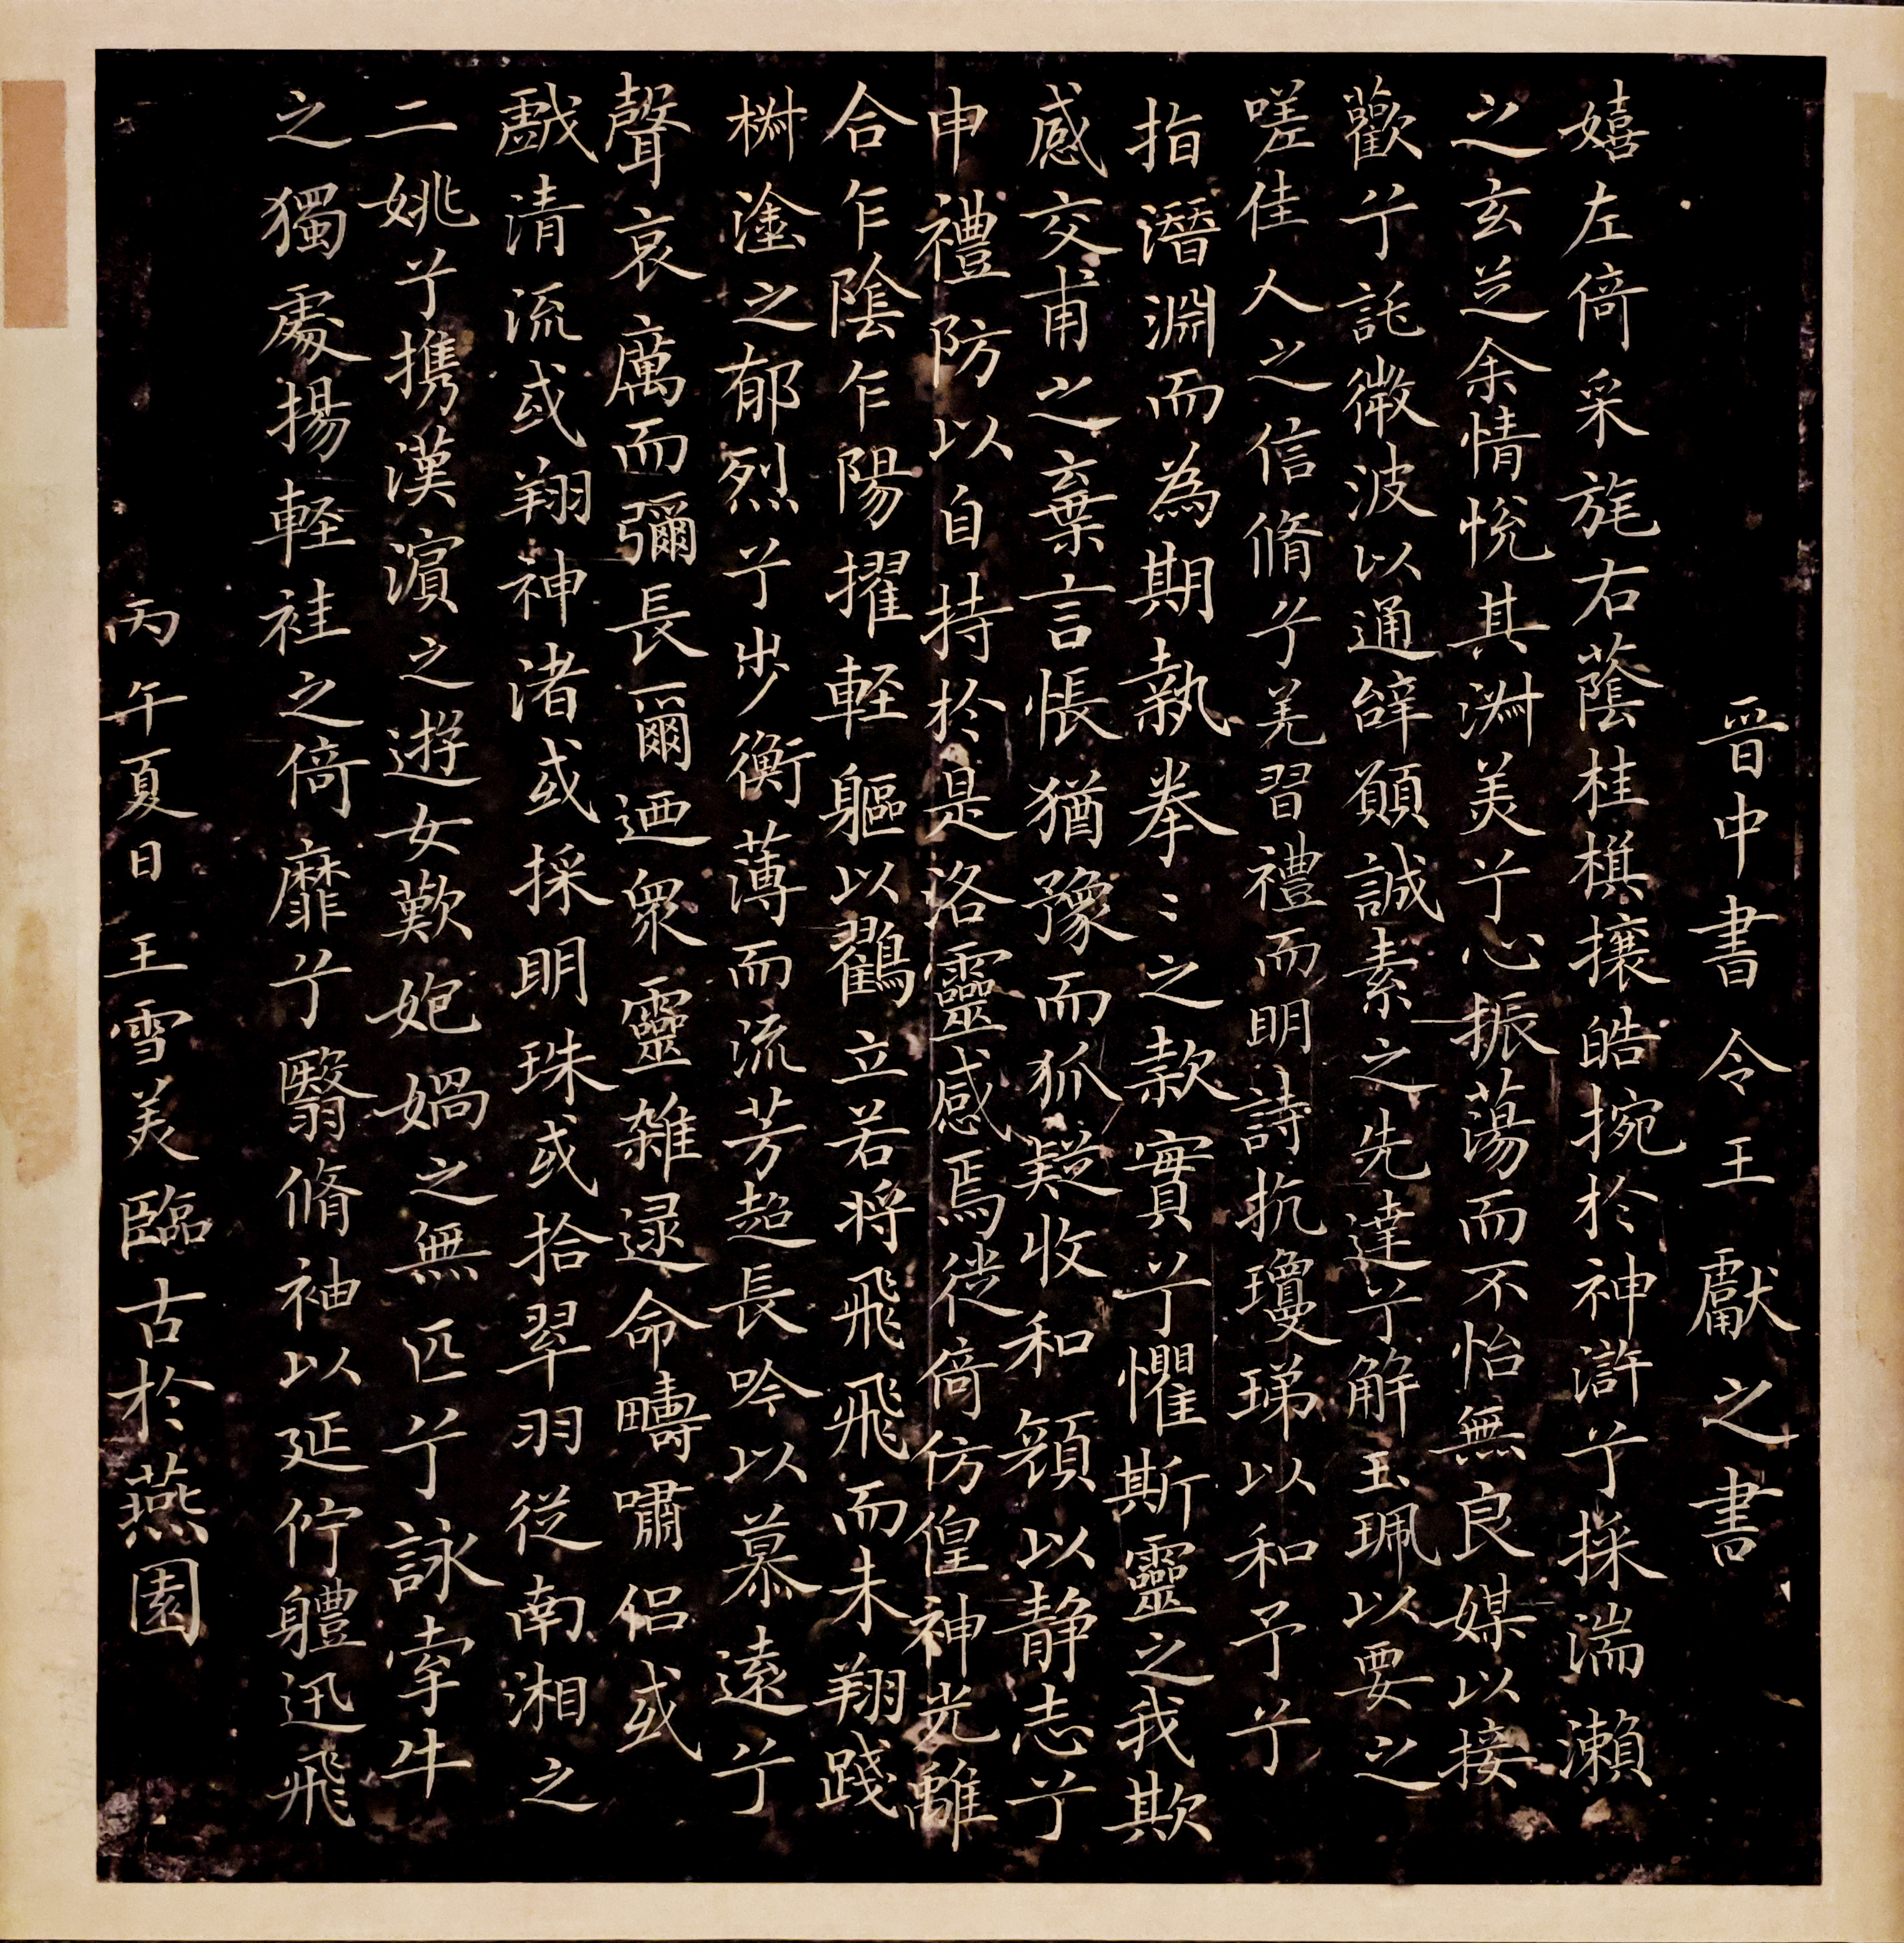 晉中書令王獻之書
嬉左倚采旄右蔭桂棋攘皓捥於神滸兮採湍瀨
之玄芝余情悅其淑美兮心振蕩而不怡無良媒以接
歡兮託微波以通辭願誠素之先達兮解玉珮以要之
嗟佳人之信脩兮羌習禮而明詩抗瓊珶以和予兮
指潛淵而為期執拳〻之款實兮懼斯靈之我欺
感交甫之棄言悵猶豫而狐疑收和顏以静志兮
申禮防以自持於是洛靈感焉徙倚仿偟神光離
合乍陰乍陽擢輕軀以鸛立若將飛飛而未翔踐
椒塗之郁烈兮步衡薄而流芳超長吟以慕遠兮
聲哀厲而彌長爾迺衆靈雜逯命疇嘯侶或
戲清流或翔神渚或採明珠或拾翠羽從南湘之
二姚兮携漢濱之遊女歎匏媧之無匹兮詠牽牛
之獨處揚輕袿之倚靡兮翳脩袖以延佇軆迅飛
丙午夏日王雪美臨古於燕園